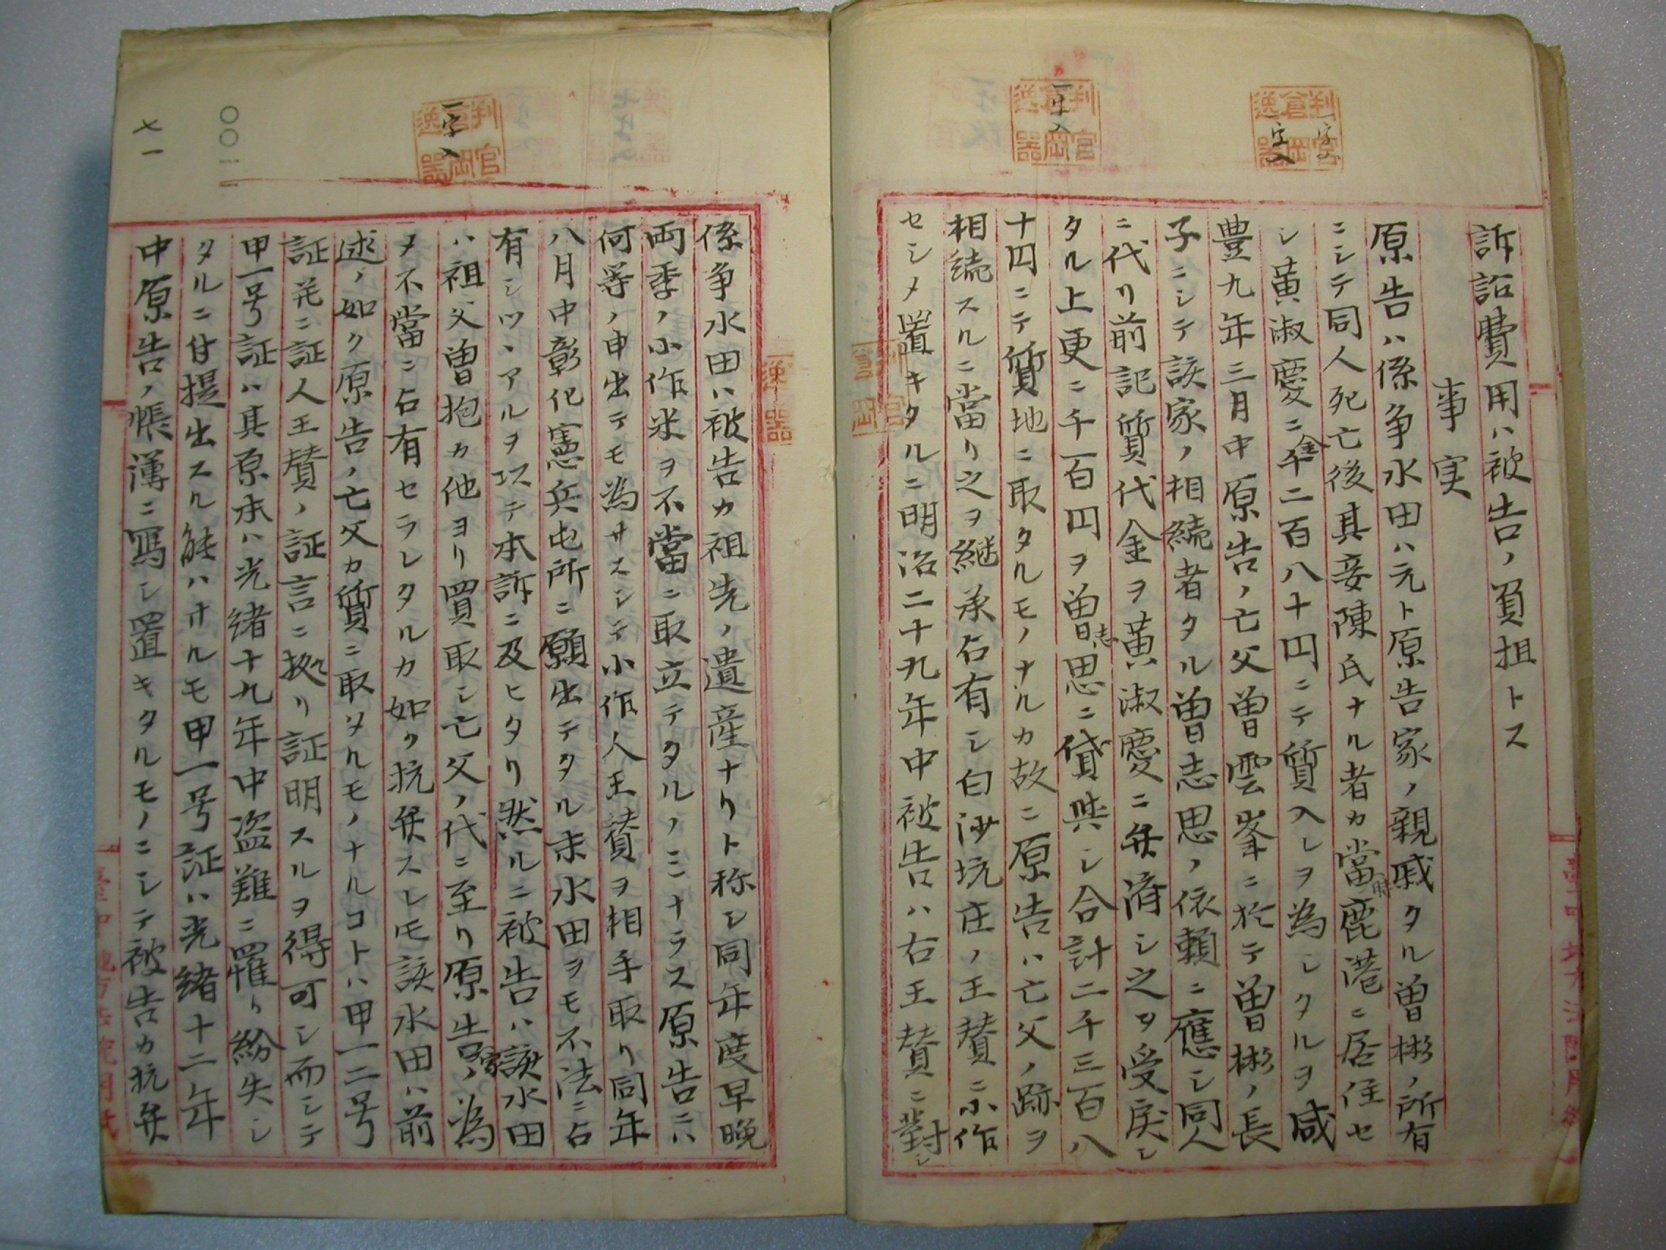 訴訟費用ハ被告ノ負担トス
事実
原告ハ係争水田ハ元ト原告家ノ親戚タル曽彬ノ所有
ニシテ同人死亡後其妾陳氏ナル者カ當時鹿港ニ居住セ
シ黄淑慶ニ金千二百八十円ニテ質入レヲ為シタルヲ咸
豊九年三月中原告ノ亡父曽雲峯ニ於テ曽彬ノ長
子ニシテ該家ノ相続者タル曽志思ノ依頼ニ應シ同人
ニ代リ前記質代金ヲ黄淑慶ニ弁済シ之ヲ受戻シ
タル上更ニ千百円ヲ曽志思ニ貸與シ合計二千三百八
十円ニテ質地ニ取タルモノナルカ故ニ原告ハ亡父ノ跡ヲ
相続スルニ當リ之ヲ継承占有シ白沙坑庄ノ王賛ニ小作
セシメ置キタルニ明治二十九年中被告ハ右王賛ニ對シ
係争水田ハ被告カ祖先ノ遺産ナリト称シ同年度早晩
両季ノ小作米ヲ不當ニ取立テタルノミナラス原告ニハ
何等ノ申出テモ為サスシテ小作人王賛ヲ相手取リ同年
八月中彰化憲兵屯所ニ願出テタル末水田ヲモ不法ニ占
有シツヽアルヲ以テ本訴ニ及ヒタリ然ルニ被告ハ該水田
ハ祖父曽抱カ他ヨリ買取シ亡父ノ代ニ至リ原告家ノ為
ヲ不當ニ占有セラレタルカ如ク抗弁スレモ該水田ハ前
述ノ如ク原告ノ亡父カ質ニ取タルモノナルコトハ甲一二号
証並ニ証人王賛ノ証言ニ拠リ証明スルヲ得可シ而シテ
甲一号証ハ其原本ハ光緒十九年中盗難ニ罹リ紛失シ
タルニ付提出スル能ハサルモ甲一号証ハ光緒十二年
中原告ノ帳簿ニ寫シ置キタルモノニシテ被告カ抗弁
一字入
一字入
一字入
判官倉岡逸器
判官倉岡逸器
判官倉岡逸器
七一
〇〇一一
臺中地方法院用紙